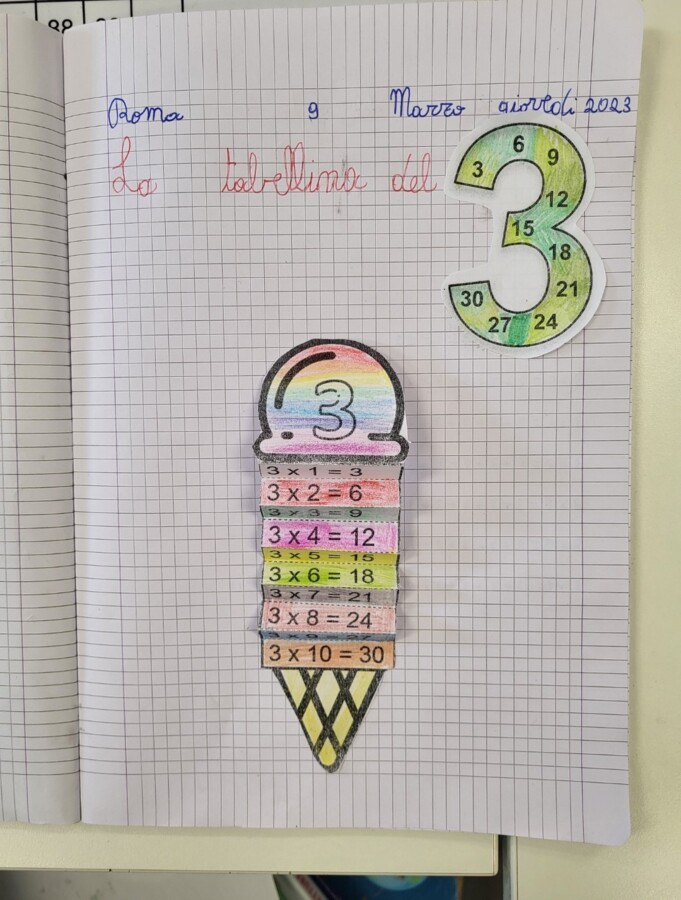 88
Roma 9 Marzo giovedi 2023
La tabellina del
3 6 9 12 15 18 21 24 27 30
3
3 x 1 = 3
3 x 2 = 6
3 x 3 = 9
3 x 4 = 12
3 x 5 = 15
3 x 6 = 18
3 x 7 = 21
3 x 8 = 24
3 x 9 = 27
3 x 10 = 30